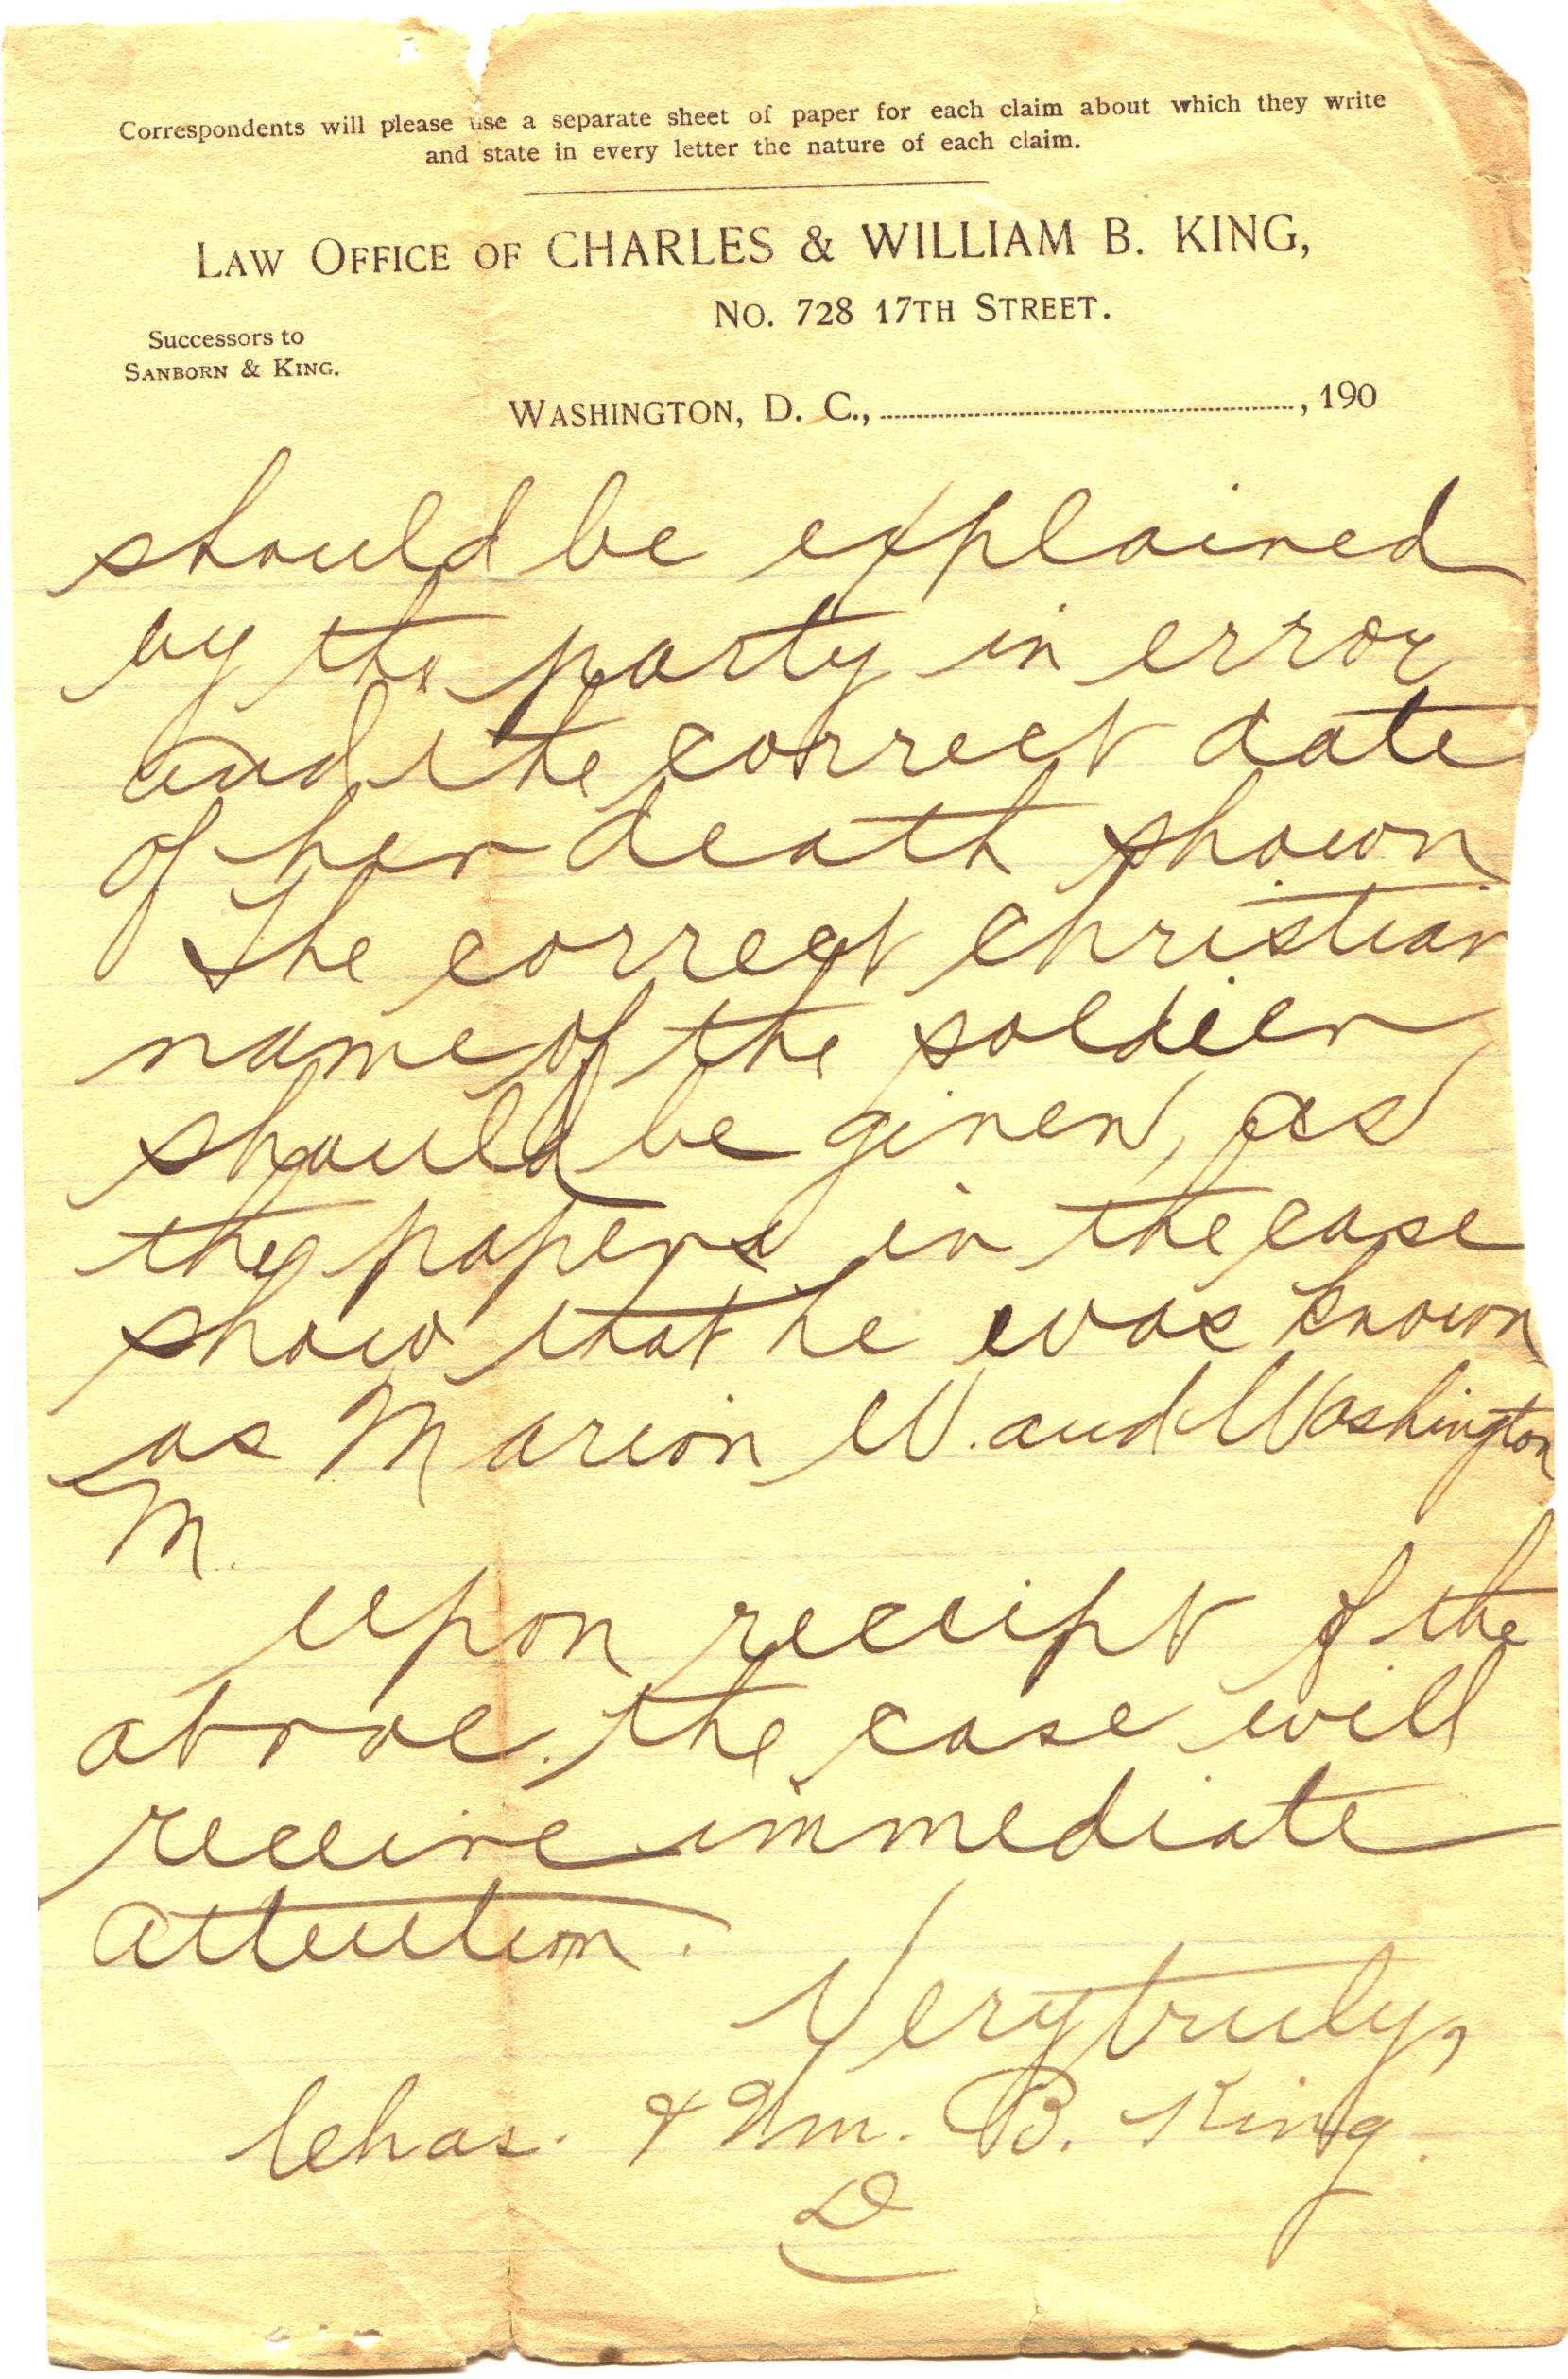 Correspondents will please use a separate sheet of paper for each claim about which they write
and state in every letter the nature of each claim.
LAW OFFICE OF CHARLES & WILLIAM B. KING,
NO. 728 17TH STREET.
Successors to
SANBORN & KING.
WASHINGTON, D. C., ........................................, 190
should be explained
by the party in error
and the correct date
of her death shown.
The correct christian
name of the soldier
should be given, as
the papers in the case
show that he was known
as Marion W. and Washington
M.
Upon receipt of the
above the case will
receive immediate
attention.
Very truly,
Chas. & Wm. B. King.
D